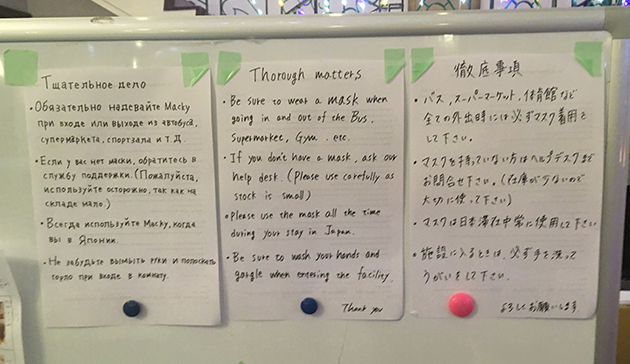 Тщательное дело
• Обязательно надевайте Маску
при входе или выходе из автобуса,
супермаркета, спортзала и т.д.
• Если у вас нет маски, обратитесь в
службу поддержки. (Пожалуйста,
используйте осторожно, так как на
складе мало.)
• Всегда используйте Маску, когда
вы в Японии.
• Не забудьте вымыть руки и полоскать
горло при входе в комнату.
Thorough matters
• Be sure to wear a mask when
going in and out of the Bus,
Supermarket, Gym . etc.
• If you don't have a mask, ask our
help desk. (Please use carefully as
stock is small)
• Please use the mask all the time
during your stay in Japan.
• Be sure to wash your hands and
gargle when entering the facility.
Thank you
徹底事項
• バス、スーパーマーケット、体育館など
全ての外出時には必ずマスク着用を
して下さい。
• マスクを持っていない方はヘルプデスクまで
お問合せ下さい。(在庫が少ないので
大切に使って下さい)
• マスクは日本滞在中常に使用して下さい
• 施設に入るときは、必ず手を洗って
うがいをして下さい。
よろしくお願いします